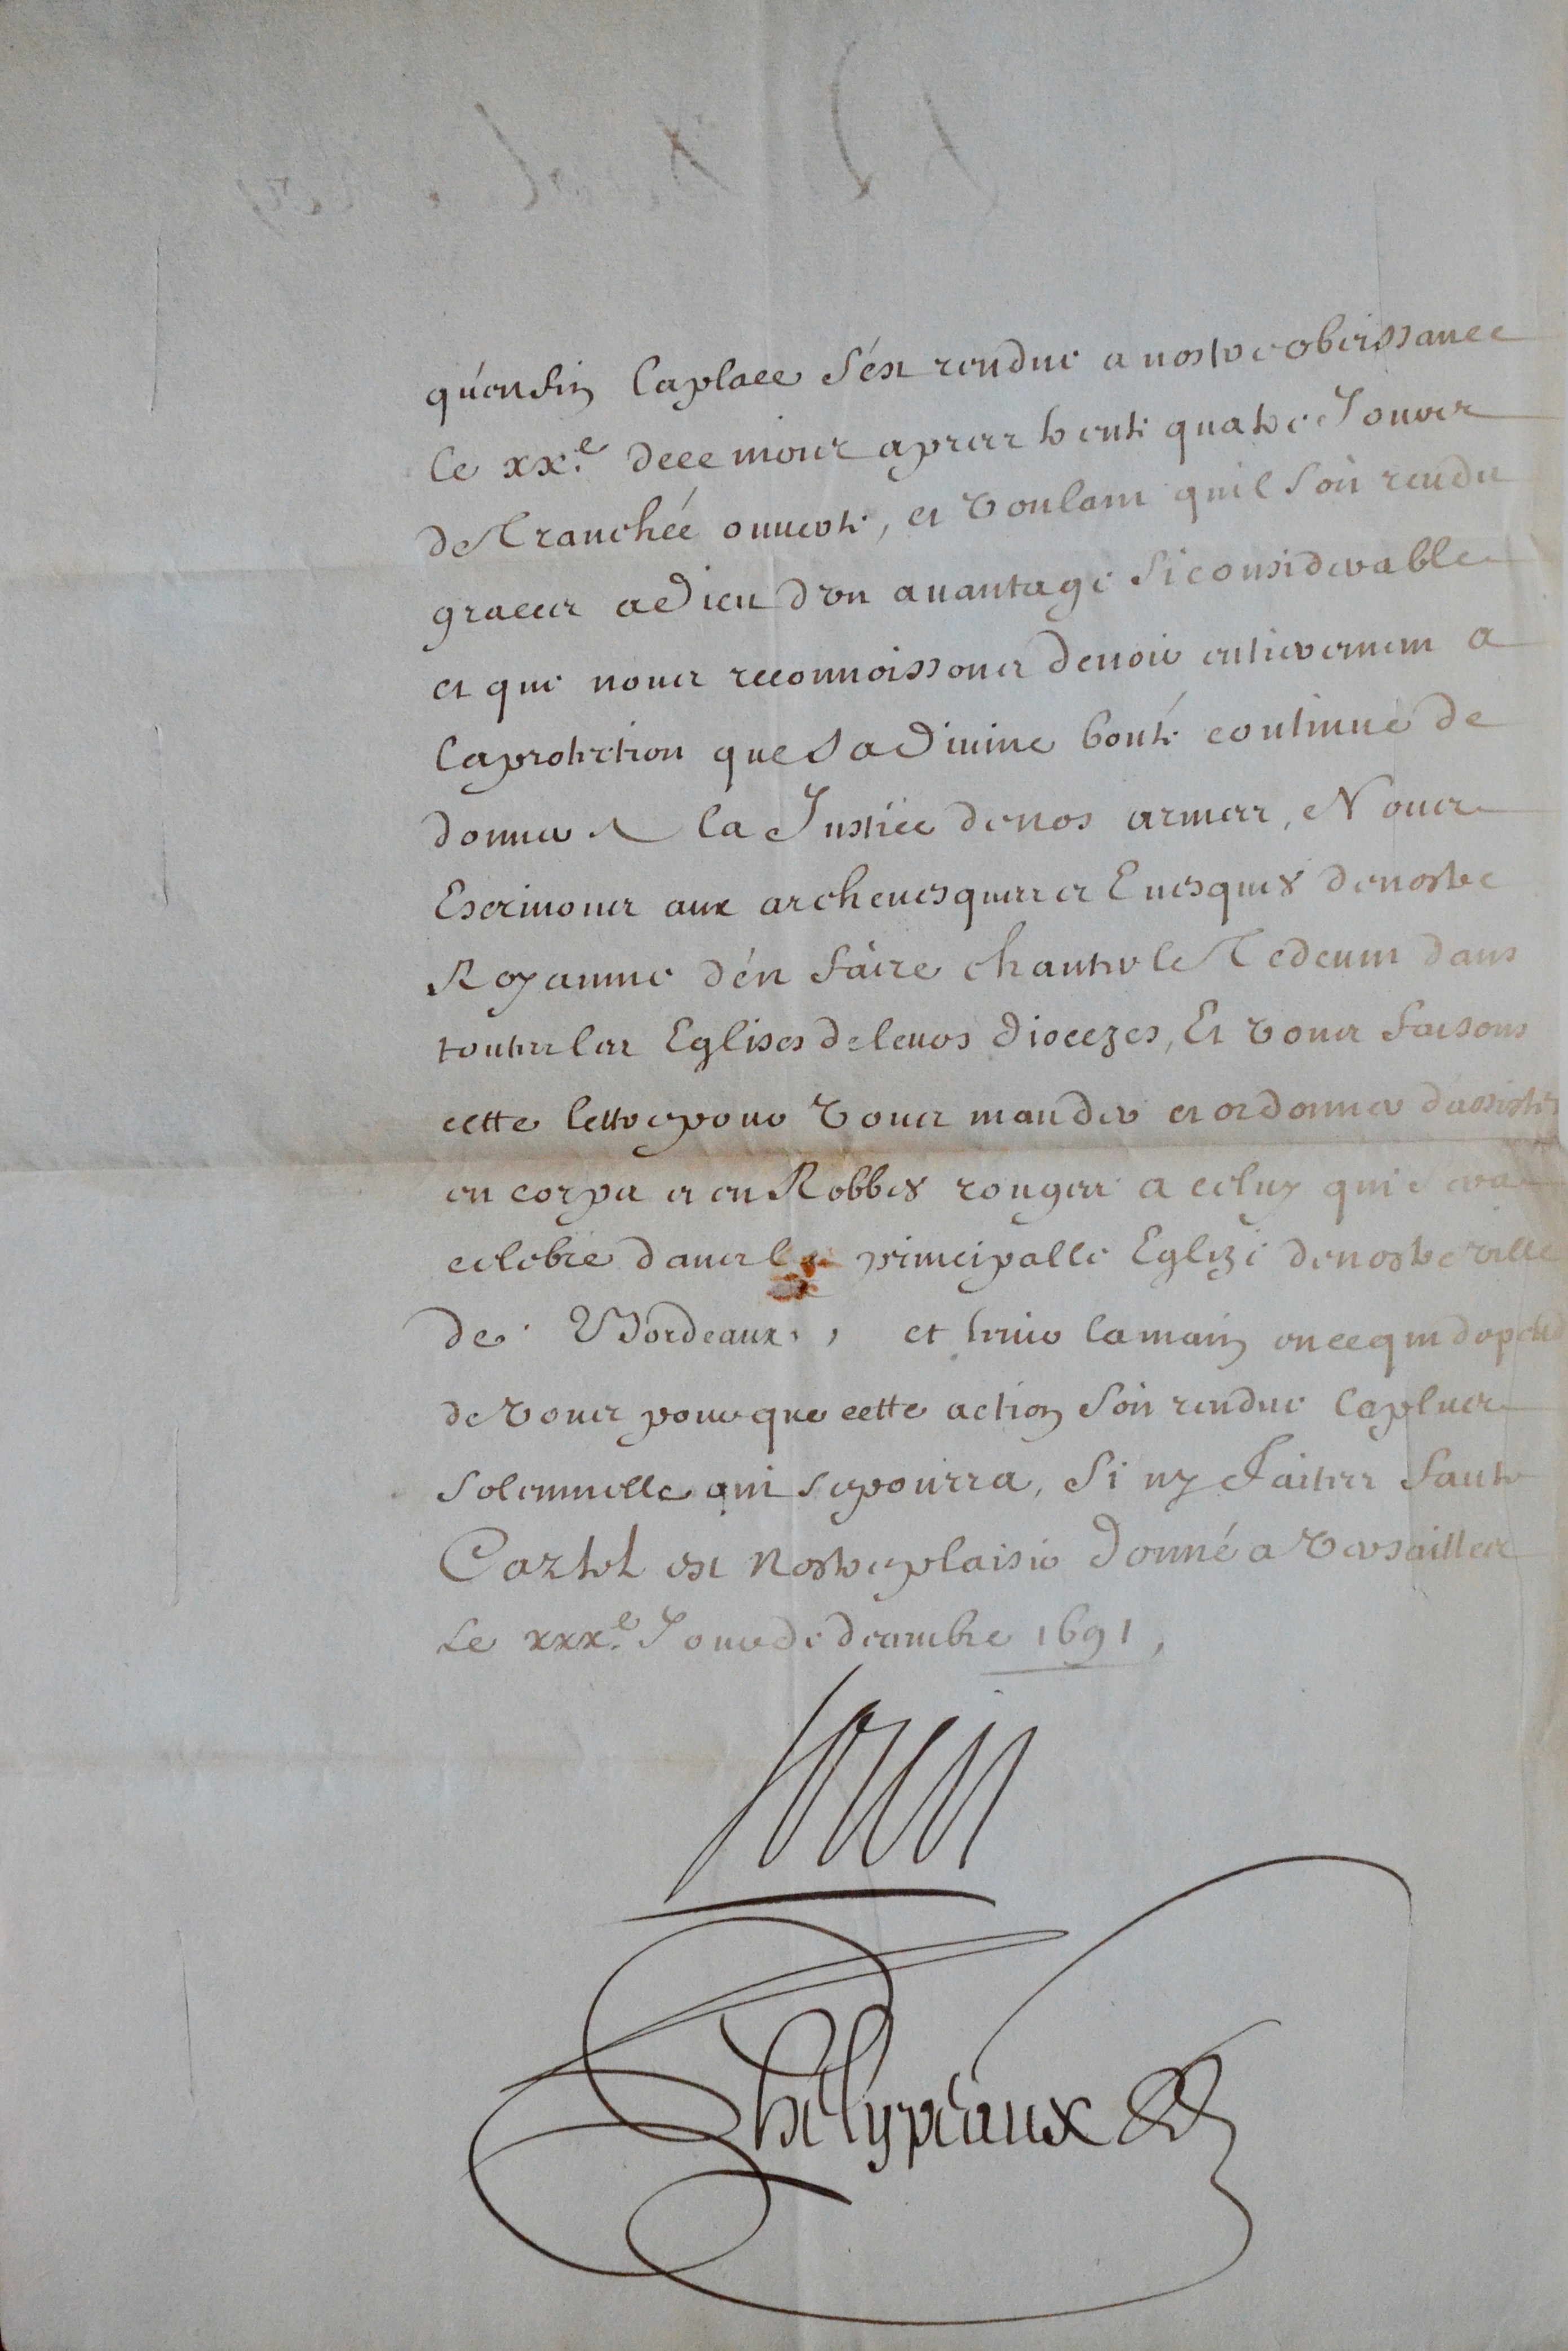 qu'enfin la place s'est rendue a nostre obeissance
le xx.e de ce mois apres trente quatre Jours
de Tranchée ouuerte, et voulant qu'il soit rendu
graces a Dieu d'un auantage si considerable
et que nous reconnoissons deuoir entierement a
la protection que sa Diuine bonté continue de
donner a la Justice de nos armes, Nous
Escriuons aux archeuesques et Euesques de nostre
Royaume d'en faire chanter le Te deum dans
toutes les Eglises de leurs Diocezes, Et vous faisons
cette lettre pour vous mander et ordonner d'assister
en corps et en Robbes rouges a celuy qui sera
celebré dans la principalle Eglize de nostre ville
de Bordeaux, et tenir la main en ce qui depend
de vous pour que cette action soit rendue la plus
solemnelle qui se pourra, Si ny faites faute
Car tel est Nostre plaisir Donné a Versailles
Le xxx.e Jour de decembre 1691,
Louis
Phelypeaux